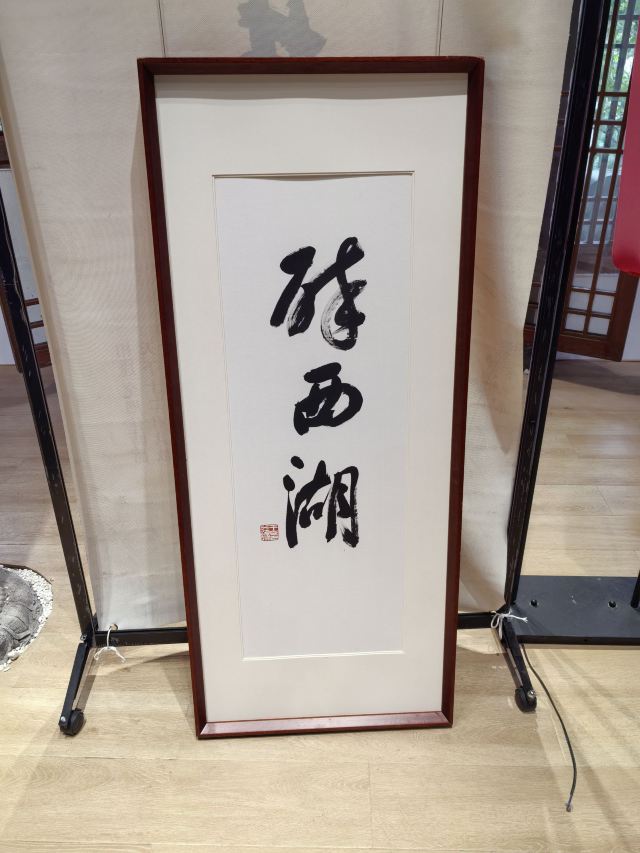 醉西湖